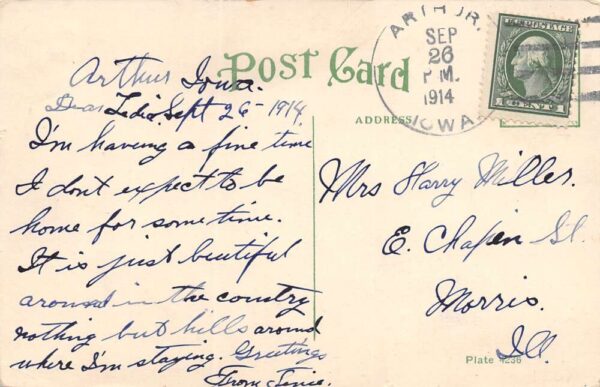 Post Card
ADDRESS
ARTHUR.
SEP
26
P M.
1914
IOWA
U.S. POSTAGE
1 CENT 1
Arthur Iowa.
Dear Sept 26 - 1914.
I'm having a fine time
I dont expect to be
home for some time.
It is just beutiful
around in the country
nothing but hills around
where I'm staying. Greetings
From
Mrs Harry Miller.
E. Chapin St.
Morris.
Ill.
Plate 4236